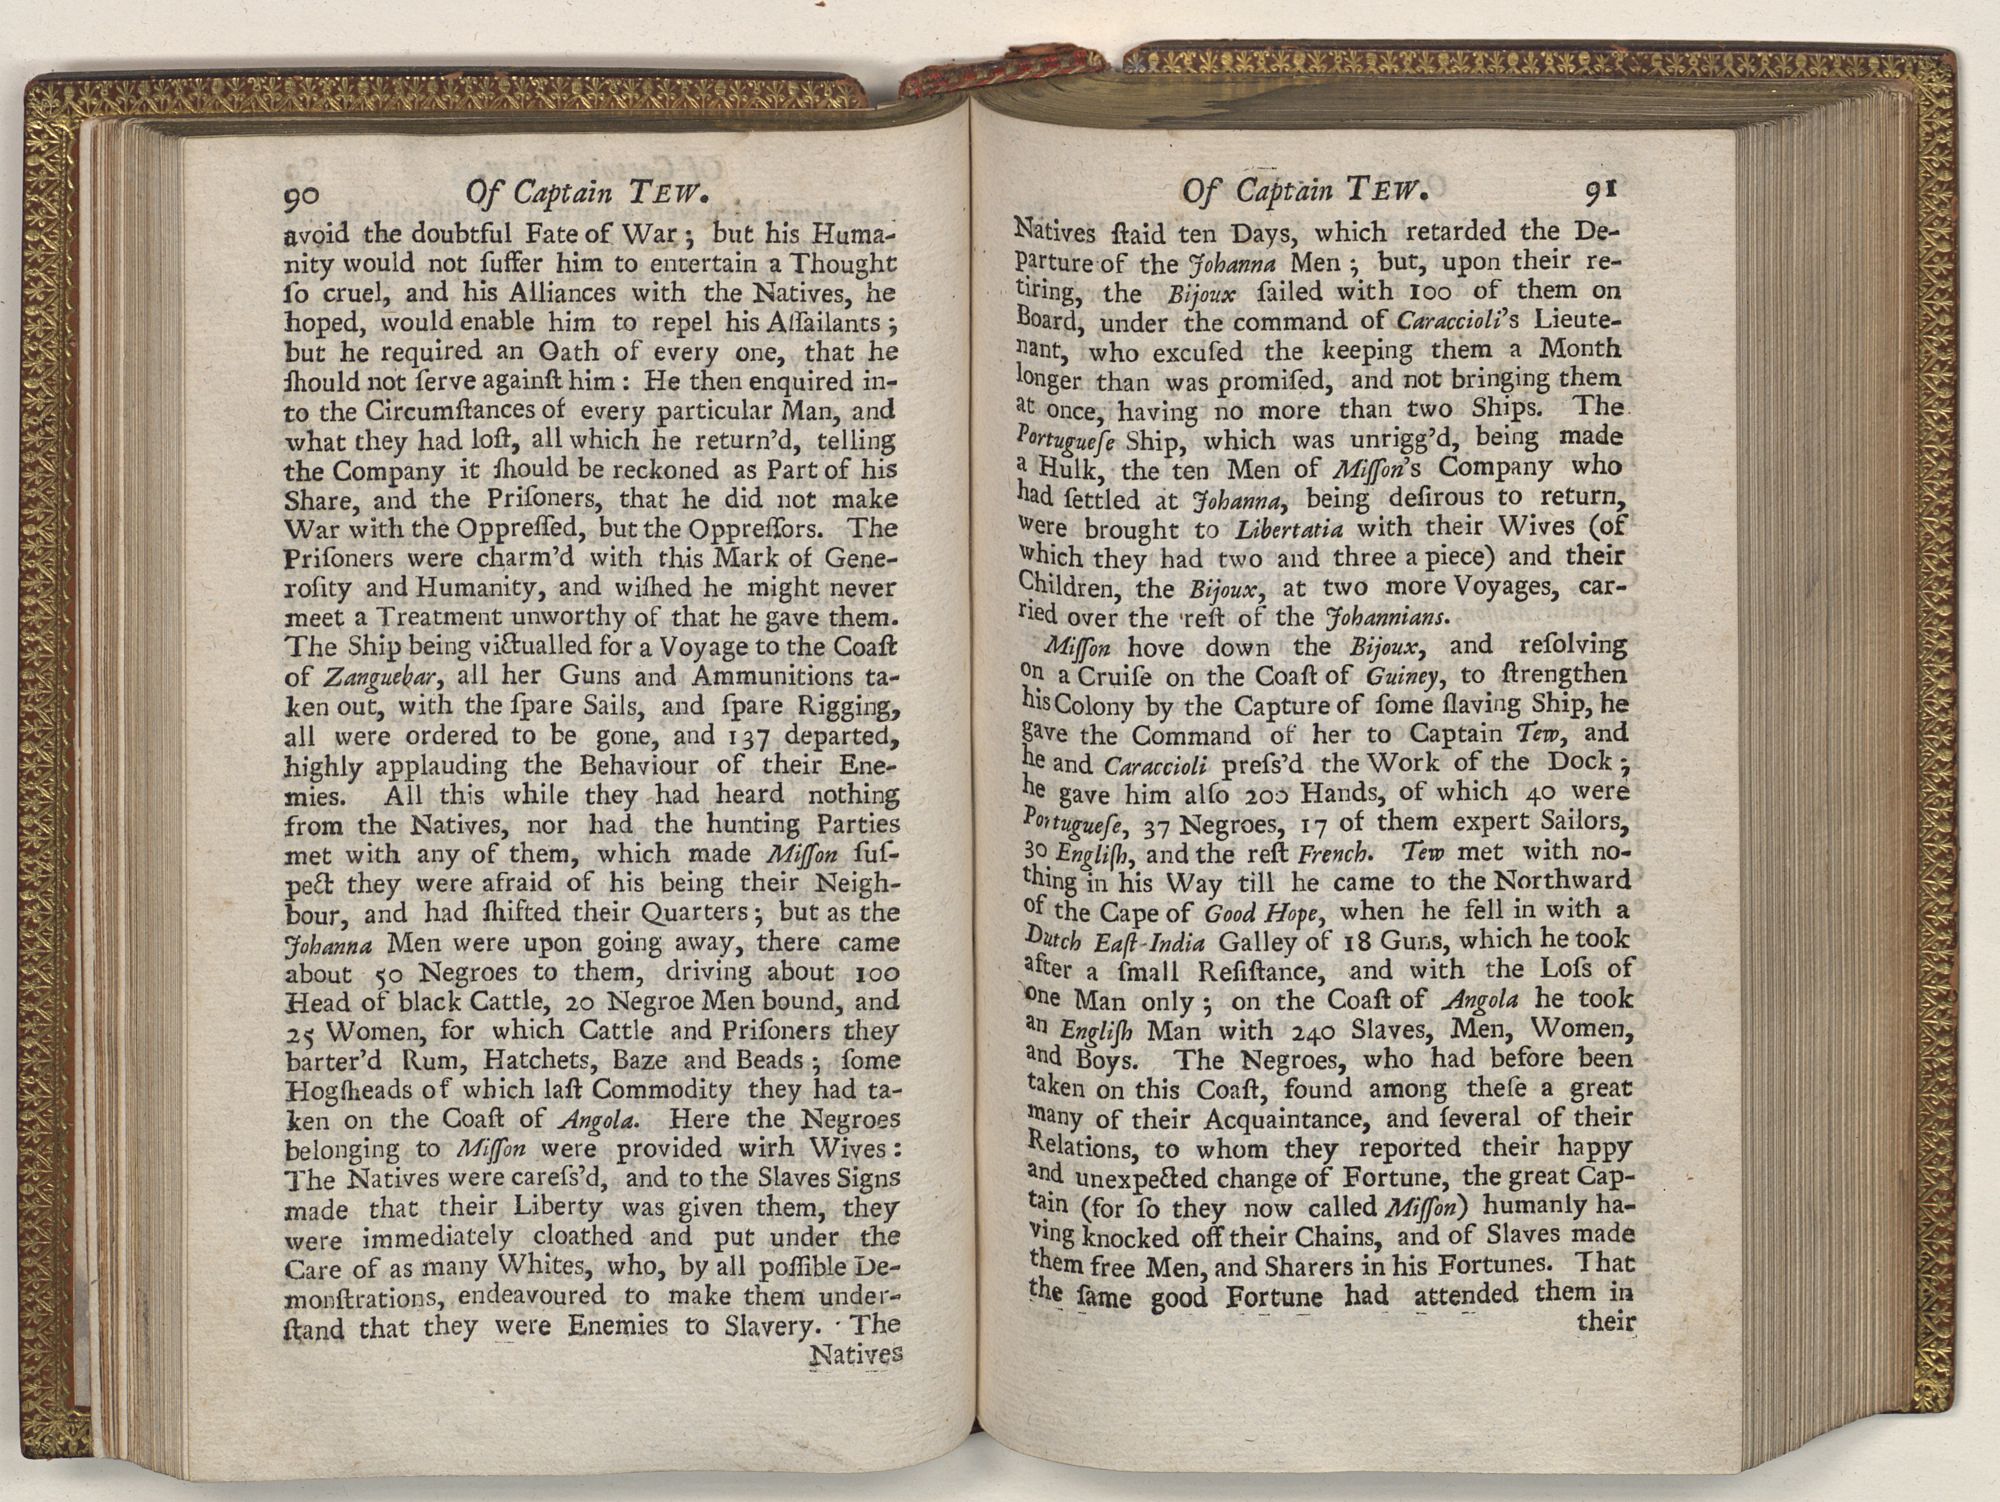 90 Of Captain TEW.
avoid the doubtful Fate of War; but his Huma-
nity would not ſuffer him to entertain a Thought
ſo cruel, and his Alliances with the Natives, he
hoped, would enable him to repel his Aſſailants;
but he required an Oath of every one, that he
ſhould not ſerve againſt him: He then enquired in-
to the Circumſtances of every particular Man, and
what they had loſt, all which he return'd, telling
the Company it ſhould be reckoned as Part of his
Share, and the Priſoners, that he did not make
War with the Oppreſſed, but the Oppreſſors. The
Priſoners were charm'd with this Mark of Gene-
roſity and Humanity, and wiſhed he might never
meet a Treatment unworthy of that he gave them.
The Ship being victualled for a Voyage to the Coaſt
of Zanguebar, all her Guns and Ammunitions ta-
ken out, with the ſpare Sails, and ſpare Rigging,
all were ordered to be gone, and 137 departed,
highly applauding the Behaviour of their Ene-
mies. All this while they had heard nothing
from the Natives, nor had the hunting Parties
met with any of them, which made Miſſon ſuſ-
pect they were afraid of his being their Neigh-
bour, and had ſhifted their Quarters; but as the
Johanna Men were upon going away, there came
about 50 Negroes to them, driving about 100
Head of black Cattle, 20 Negroe Men bound, and
25 Women, for which Cattle and Priſoners they
barter'd Rum, Hatchets, Baze and Beads; ſome
Hogſheads of which laſt Commodity they had ta-
ken on the Coaſt of Angola. Here the Negroes
belonging to Miſſon were provided wirh Wives:
The Natives were careſs'd, and to the Slaves Signs
made that their Liberty was given them, they
were immediately cloathed and put under the
Care of as many Whites, who, by all poſſible De-
monſtrations, endeavoured to make them under-
ſtand that they were Enemies to Slavery. The
Natives
Of Captain TEW. 91
Natives ſtaid ten Days, which retarded the De-
parture of the Johanna Men; but, upon their re-
tiring, the Bijoux ſailed with 100 of them on
Board, under the command of Caraccioli's Lieute-
nant, who excuſed the keeping them a Month
longer than was promiſed, and not bringing them
at once, having no more than two Ships. The
Portugueſe Ship, which was unrigg'd, being made
a Hulk, the ten Men of Miſſon's Company who
had ſettled at Johanna, being deſirous to return,
were brought to Libertatia with their Wives (of
which they had two and three a piece) and their
Children, the Bijoux, at two more Voyages, car-
ried over the reſt of the Johannians.
Miſſon hove down the Bijoux, and reſolving
on a Cruiſe on the Coaſt of Guiney, to ſtrengthen
his Colony by the Capture of ſome ſlaving Ship, he
gave the Command of her to Captain Tew, and
he and Caraccioli preſs'd the Work of the Dock;
he gave him alſo 200 Hands, of which 40 were
Portugueſe, 37 Negroes, 17 of them expert Sailors,
30 Engliſh, and the reſt French. Tew met with no-
thing in his Way till he came to the Northward
of the Cape of Good Hope, when he fell in with a
Dutch Eaſt-India Galley of 18 Guns, which he took
after a ſmall Reſiſtance, and with the Loſs of
one Man only; on the Coaſt of Angola he took
an Engliſh Man with 240 Slaves, Men, Women,
and Boys. The Negroes, who had before been
taken on this Coaſt, found among theſe a great
many of their Acquaintance, and ſeveral of their
Relations, to whom they reported their happy
and unexpected change of Fortune, the great Cap-
tain (for ſo they now called Miſſon) humanly ha-
ving knocked off their Chains, and of Slaves made
them free Men, and Sharers in his Fortunes. That
the ſame good Fortune had attended them in
their